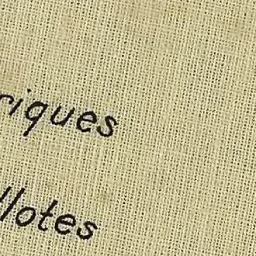 riques
llotes